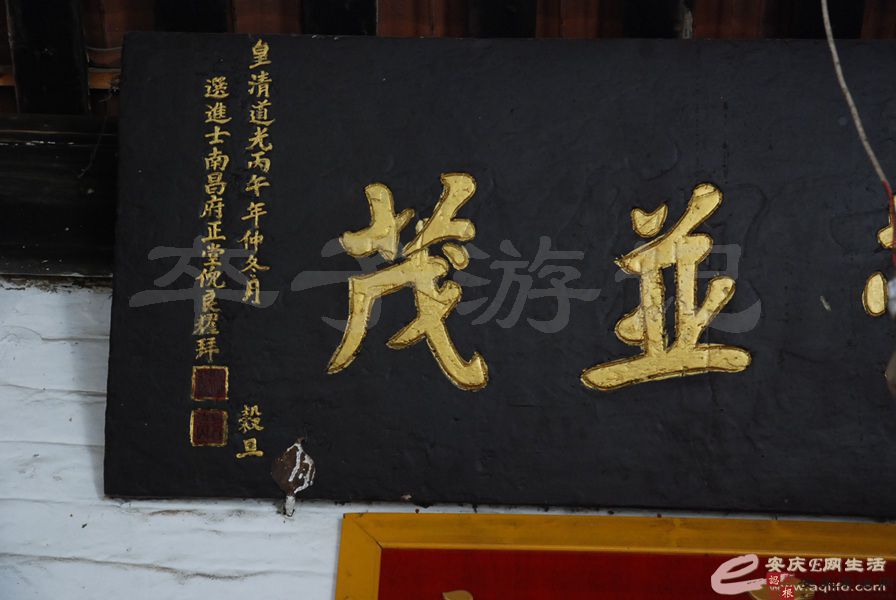 並茂
皇清道光丙午年仲冬月
穀旦
選進士南昌府正堂倪良耀拜
安庆E网生活
www.aqlife.com